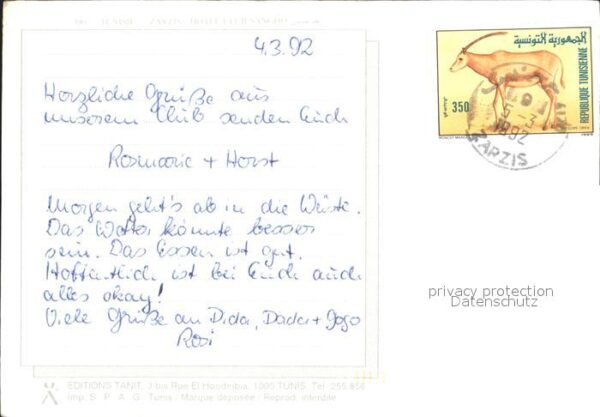 4.3.92
Herzliche Grüße aus
unserem Club senden Euch
Rosmarie + Horst
Morgen geht's ab in die Wüste.
Das Wetter könnte besser
sein. Das Essen ist gut.
Hoffentlich ist bei Euch auch
alles okay!
Viele Grüße an Dida, Dada + Gogo
Rosi
الجمهورية التونسية
REPUBLIQUE TUNISIENNE
350
1992
ZARZIS
privacy protection
Datenschutz
EDITIONS TANIT, 3 bis Rue El Houdhibia, 1000 TUNIS Tel. 255.856
Imp. S P A G Tunis / Marque déposée / Reprod. interdite